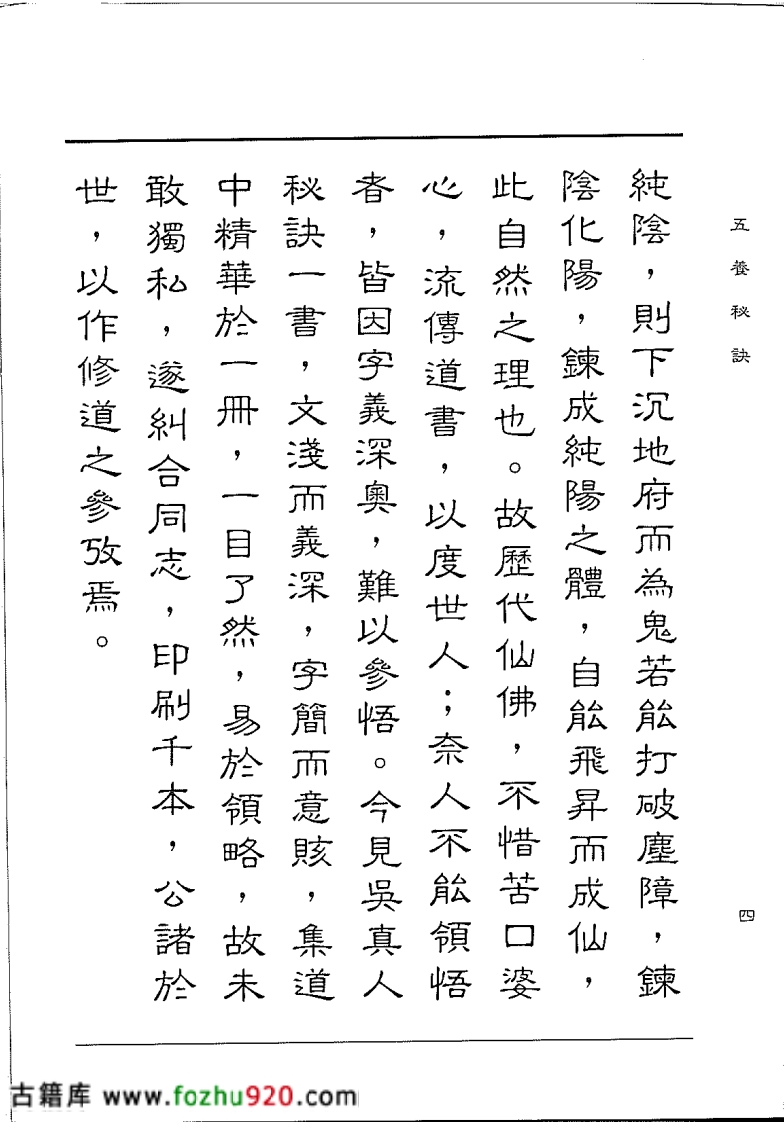 五養秘訣
四
純陰，則下沉地府而為鬼若能打破塵障，鍊
陰化陽，鍊成純陽之體，自能飛昇而成仙，
此自然之理也。故歷代仙佛，不惜苦口婆
心，流傳道書，以度世人；奈人不能領悟
者，皆因字義深奧，難以參悟。今見吳真人
秘訣一書，文淺而義深，字簡而意賅，集道
中精華於一冊，一目了然，易於領略，故未
敢獨私，遂糾合同志，印刷千本，公諸於
世，以作修道之參攷焉。
古籍库 www.fozhu920.com